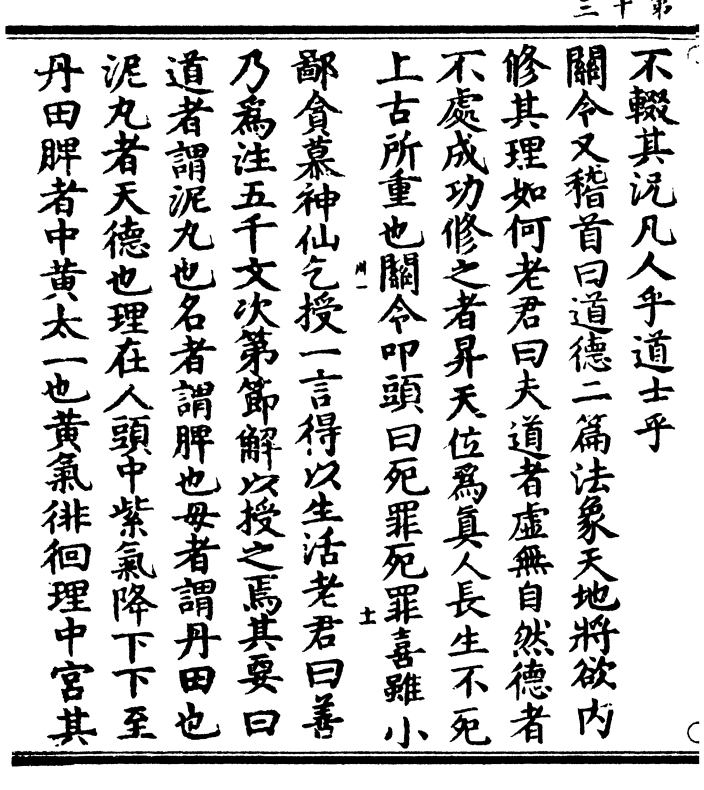 第十三
不輟其況凡人乎道士乎
關令又稽首曰道德二篇法象天地將欲內
修其理如何老君曰夫道者虛無自然德者
不處成功修之者昇天位爲眞人長生不死
上古所重也關令叩頭曰死罪死罪喜雖小
鄙貪慕神仙乞授一言得以生活老君曰善
乃爲注五千文次第節解以授之焉其要曰
道者謂泥丸也名者謂脾也母者謂丹田也
泥丸者天德也理在人頭中紫氣降下下至
丹田脾者中黃太一也黃氣徘徊理中宮其